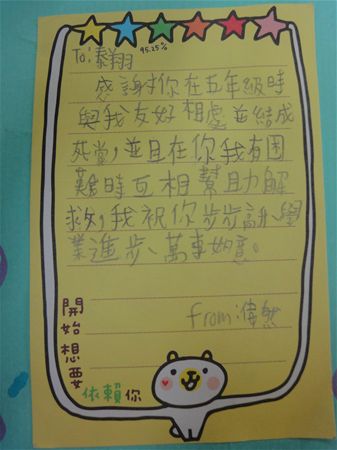 To:泰翔 95.25%
感謝你在五年級時
與我友好相處並結成
死黨,並且在你我有困
難時互相幫助解
救,我祝你步步高升、學
業進步、萬事如意。
from:偉然
開始想要
依賴你